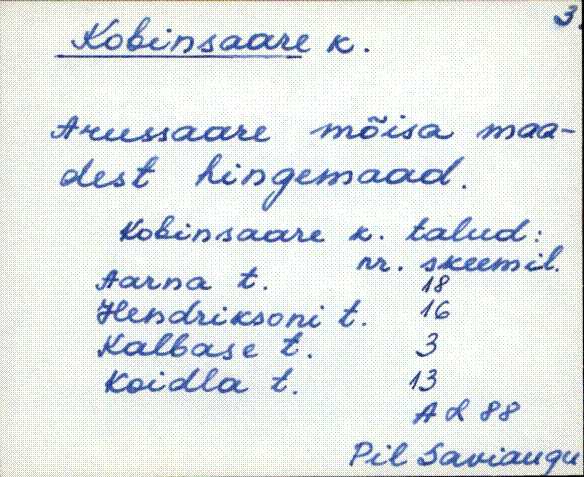 3.
Kobinsaare k.
Arussaare mõisa maa-
dest hingemaad.
Kobinsaare k. talud:
nr. skeemil.
Aarna t. 18
Hendriksoni t. 16
Kalbase t. 3
Koidla t. 13
AL 88
Pil Saviaugu